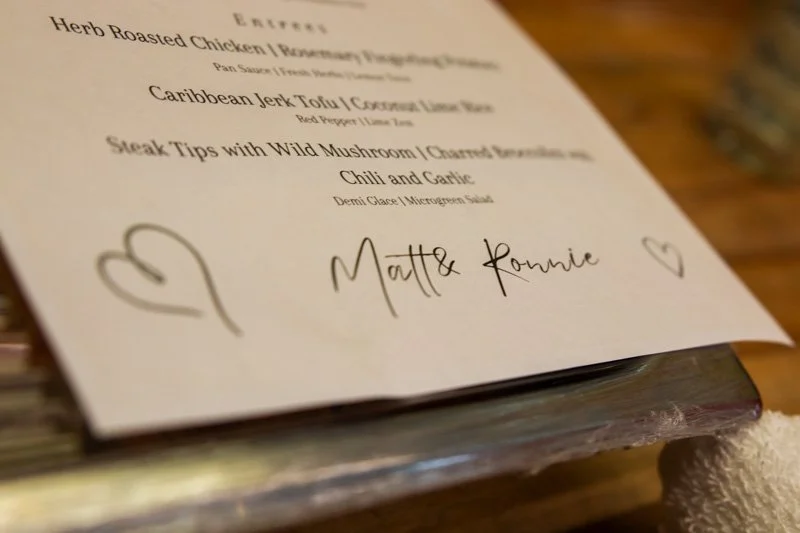 Entrees
Herb Roasted Chicken | Rosemary Fingerling Potatoes
Pan Sauce | Fresh Herbs | Lemon
Caribbean Jerk Tofu | Coconut Lime Rice
Red Pepper | Lime Zest
Steak Tips with Wild Mushroom | Charred Broccolini
Chili and Garlic
Demi Glace | Microgreen Salad
Matt & Ronnie